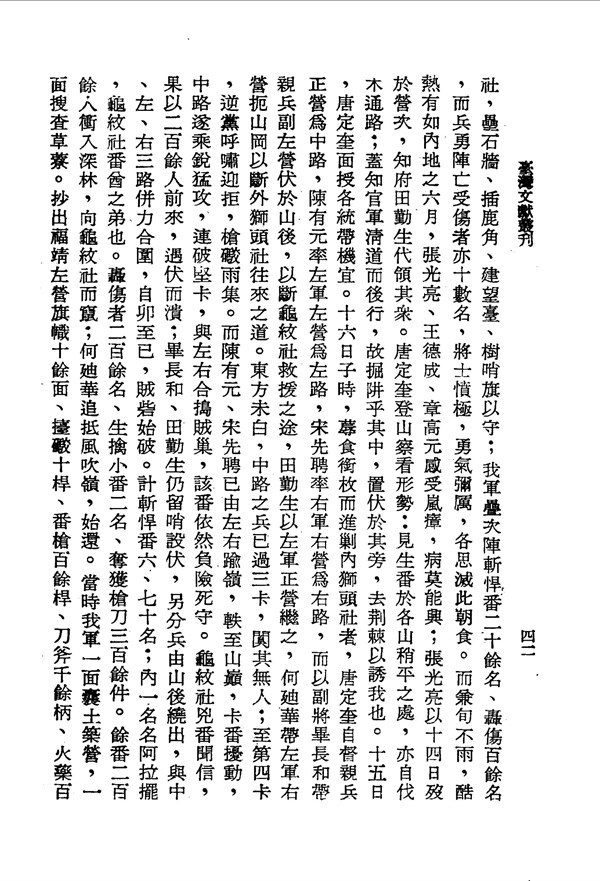 臺灣文獻叢刊
四二
社，壘石牆、插鹿角、建望臺、樹哨旗以守；我軍疊次陣斬悍番二十餘名、轟傷百餘名
，而兵勇陣亡受傷者亦十數名，將士憤極，勇氣彌厲，各思滅此朝食。而兼旬不雨，酷
熱有如內地之六月，張光亮、王德成、章高元感受嵐瘴，病莫能興；張光亮以十四日歿
於營次，知府田勤生代領其衆。唐定奎登山察看形勢：見生番於各山稍平之處，亦自伐
木通路；蓋知官軍清道而後行，故掘阱乎其中，置伏於其旁，去荆棘以誘我也。十五日
，唐定奎面授各統帶機宜。十六日子時，蓐食銜枚而進剿內獅頭社者，唐定奎自督親兵
正營爲中路，陳有元率左軍左營爲左路，宋先聘率右軍右營爲右路，而以副將畢長和帶
親兵副左營伏於山後，以斷龜紋社救援之途，田勤生以左軍正營繼之，何廸華帶左軍右
營扼山岡以斷外獅頭社往來之道。東方未白，中路之兵已過三卡，闃其無人；至第四卡
，逆黨呼嘯迎拒，槍礮雨集。而陳有元、宋先聘已由左右踰嶺，軼至山巔，卡番擾動，
中路遂乘銳猛攻，連破堅卡，與左右合搗賊巢，該番依然負險死守。龜紋社兇番聞信，
果以二百餘人前來，遇伏而潰；畢長和、田勤生仍留哨設伏，另分兵由山後繞出，與中
、左、右三路併力合圍，自卯至巳，賊砦始破。計斬悍番六、七十名；內一名名阿拉擺
，龜紋社番酋之弟也。轟傷者二百餘名、生擒小番二名、奪獲槍刀三百餘件。餘番二百
餘人衝入深林，向龜紋社而竄；何廸華追抵風吹嶺，始還。當時我軍一面囊土築營，一
面搜查草藔。抄出福靖左營旗幟十餘面、擡礮十桿、番槍百餘桿、刀斧千餘柄、火藥百